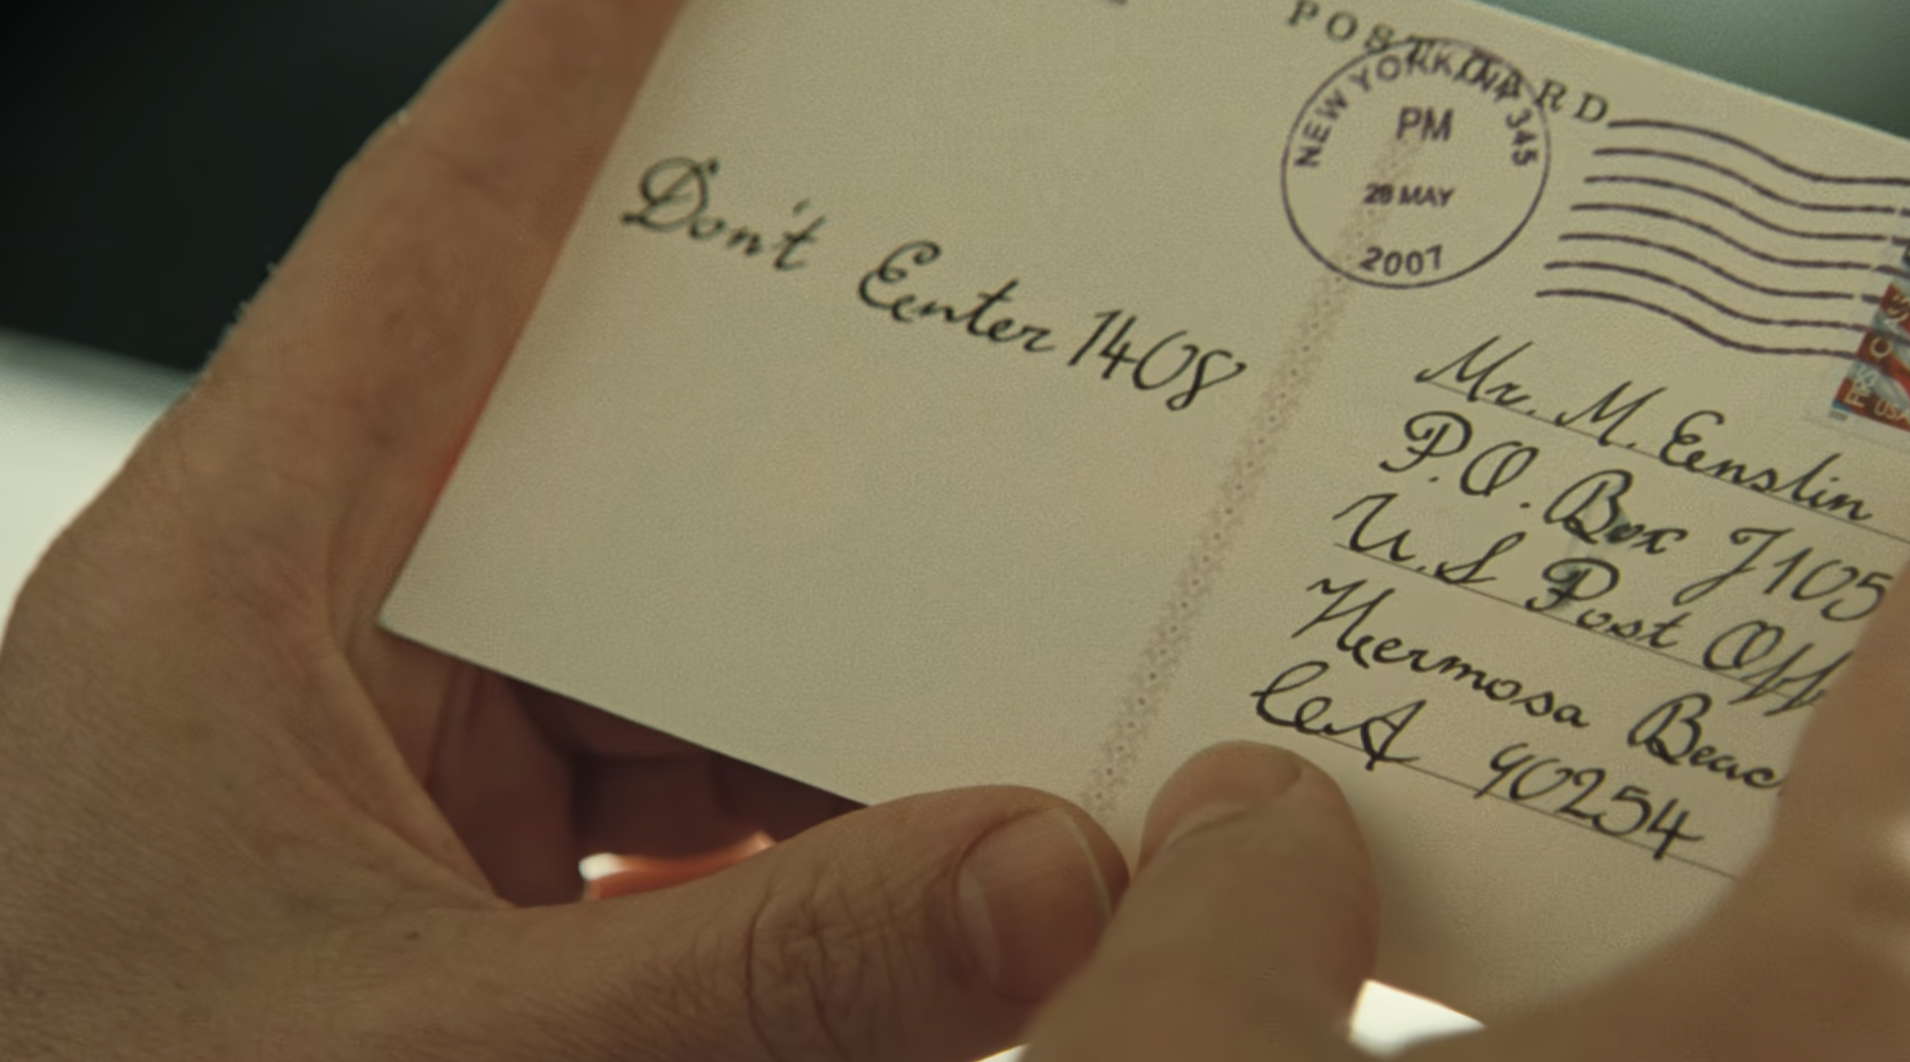 POSTCARD
NEW YORK NY 345
PM
28 MAY
2007
Don't Enter 1408
Mr. M. Enslin
P.O. Box J105
U.S Post Off
Hermosa Beac
CA 90254
USA